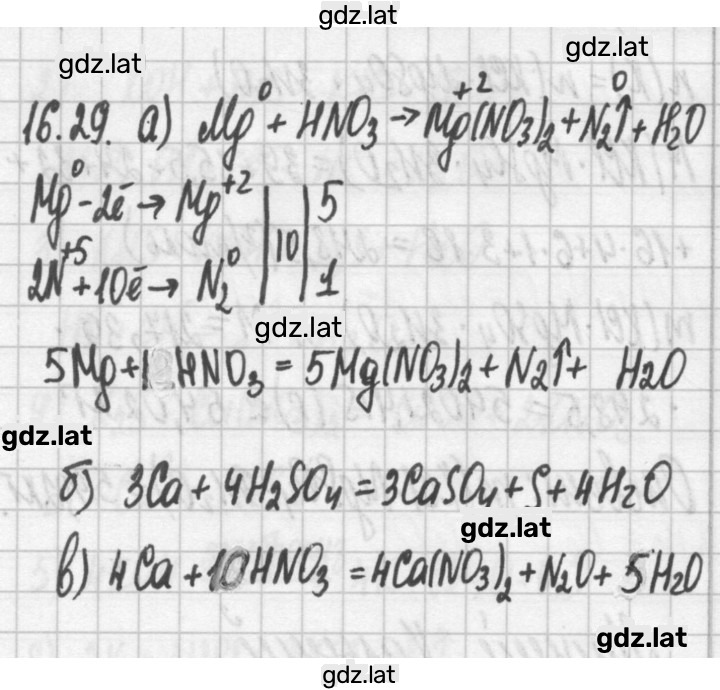 gdz.lat
gdz.lat
gdz.lat
16.29. а) Mg⁰ + HNO₃ → Mg⁺²(NO₃)₂ + N₂⁰↑ + H₂O
Mg⁰ - 2ē → Mg⁺² | | 5
10
2N⁺⁵ + 10ē → N₂⁰ | | 1
gdz.lat
5Mg + 1 HNO₃ = 5Mg(NO₃)₂ + N₂↑ + H₂O
gdz.lat
б) 3Ca + 4H₂SO₄ = 3CaSO₄ + S + 4H₂O
gdz.lat
в) 4Ca + 10HNO₃ = 4Ca(NO₃)₂ + N₂O + 5H₂O
gdz.lat
gdz.lat